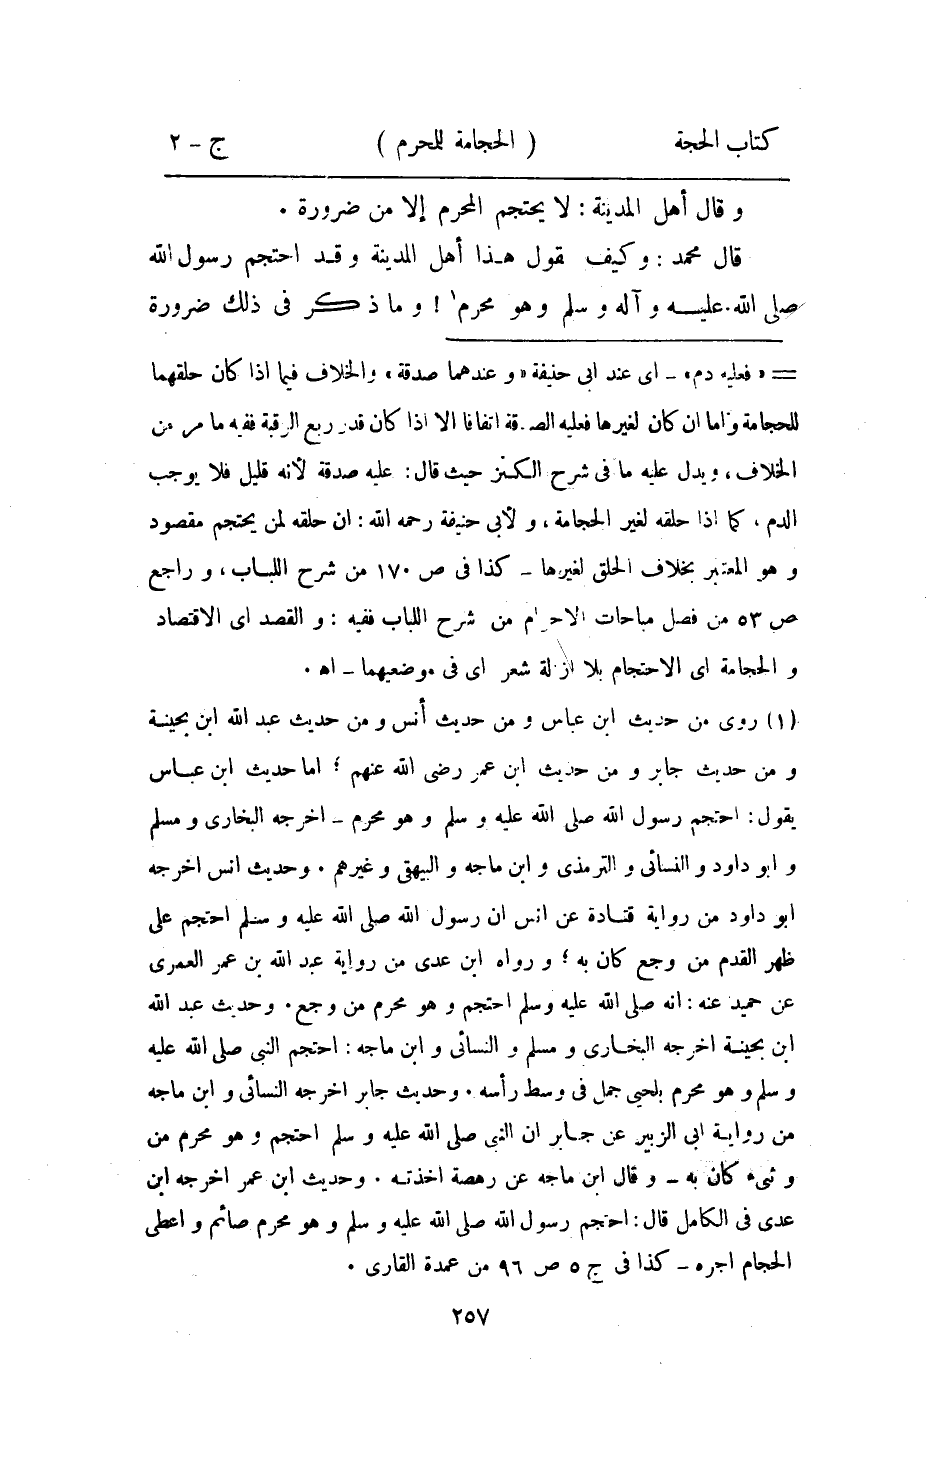 كتاب الحجة ( الحجامة للمحرم ) ج - ٢
و قال أهل المدينة : لا يحتجم المحرم إلا من ضرورة .
قال محمد : وكيف يقول هذا أهل المدينة و قد احتجم رسول الله
صلى الله عليه و آله و سلم وهو محرم١ ! و ما ذكر فى ذلك ضرورة
= « فعليه دم» - اى عند ابى حنيفة « و عندهما صدقة » والخلاف فيما اذا كان حلقهما
للحجامة واما ان كان لغيرها فعليه الصدقة اتفاقا الا اذا كان قدر ربع الرقبة ففيه ما مر من
الخلاف ، ويدل عليه ما فى شرح الكنز حيث قال : عليه صدقة لأنه قليل فلا يوجب
الدم ، كما اذا حلقه لغير الحجامة ، و لأبى حنيفة رحمه الله : ان حلقه لمن يحتجم مقصود
و هو المعتبر بخلاف الحلق لغيرها - كذا فى ص ١٧٠ من شرح اللباب ، و راجع
ص ٥٣ من فصل مباحات الاحرام من شرح اللباب ففيه : و القصد اى الاقتصاد
و الحجامة اى الاحتجام بلا ازالة شعر اى فى موضعيهما - اه .
(١) روى من حديث ابن عباس و من حديث أنس و من حديث عبد الله ابن بحينة
و من حديث جابر و من حديث ابن عمر رضى الله عنهم ؛ اما حديث ابن عباس
يقول : احتجم رسول الله صلى الله عليه و سلم و هو محرم - اخرجه البخارى و مسلم
و ابو داود و النسائى و الترمذى و ابن ماجه و البيهقى و غيرهم . وحديث انس اخرجه
ابو داود من رواية قتادة عن انس ان رسول الله صلى الله عليه و سلم احتجم على
ظهر القدم من وجع كان به ؛ و رواه ابن عدى من رواية عبد الله بن عمر العمرى
عن حميد عنه : انه صلى الله عليه وسلم احتجم و هو محرم من وجع . وحديث عبد الله
ابن بحينة اخرجه البخارى و مسلم و النسائى و ابن ماجه : احتجم النبى صلى الله عليه
و سلم و هو محرم بلحيى جمل فى وسط رأسه . وحديث جابر اخرجه النسائى و ابن ماجه
من رواية ابى الزبير عن جابر ان النبى صلى الله عليه و سلم احتجم و هو محرم من
و ثىء كان به - و قال ابن ماجه عن رهصة اخذته . وحديث ابن عمر اخرجه ابن
عدى فى الكامل قال : احتجم رسول الله صلى الله عليه و سلم و هو محرم صائم و اعطى
الحجام اجره - كذا فى ج ٥ ص ٩٦ من عمدة القارى .
٢٥٧